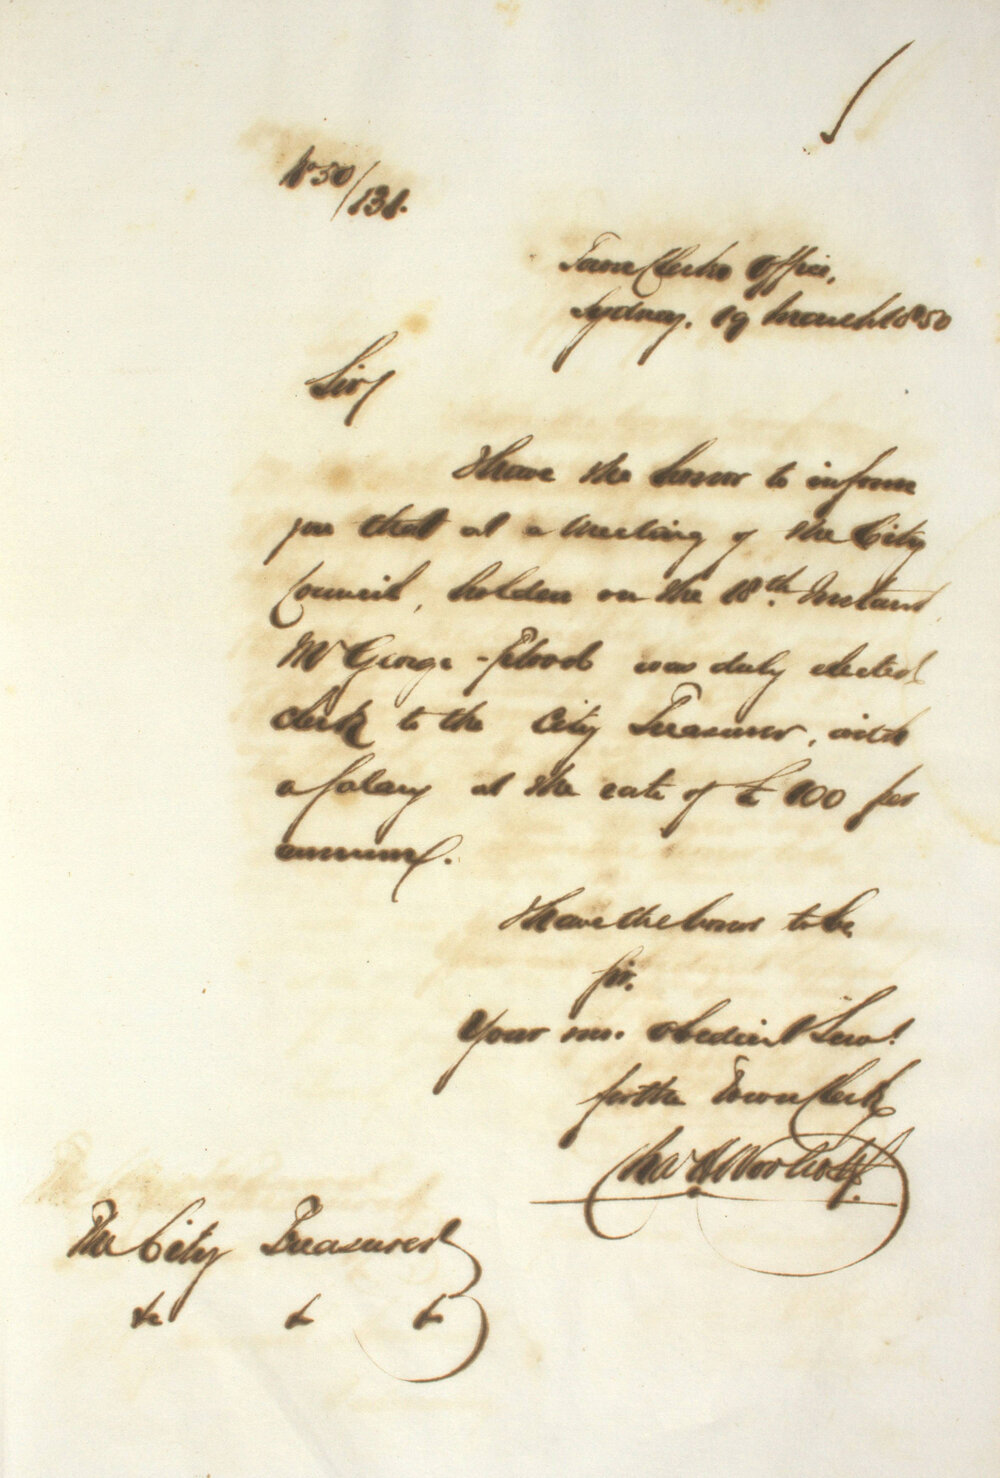 No 50/131.
Town Clerks Office,
Sydney. 19 March 1850
Sir,
I have the honor to inform
you that at a Meeting of the City
Council, holden on the 18th Instant
Mr George Flood was duly elected
Clerk to the City Treasurer, with
a Salary at the rate of £100 per
annum.
I have the honor to be,
Sir,
Your mo. obedient Servt
for the Town Clerk
Chas H Woolcott.
The City Treasurer
&c & &